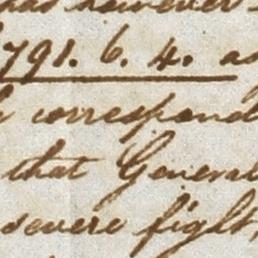 has however
791. 6. 4. as
correspond
that General
severe fight,